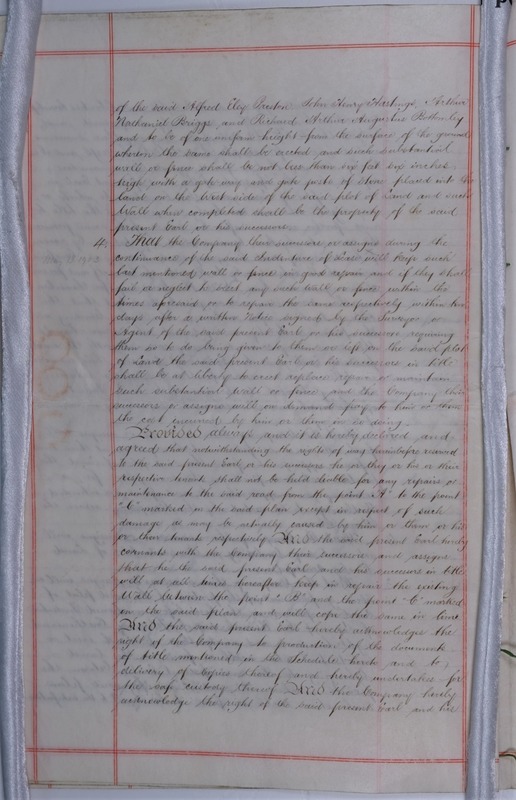 of the said Alfred Eley Preston John Henry Hastings, Arthur
Nathaniel Briggs and Richard Arthur Augustine Bottomley
and to be of one uniform height from the surface of the ground
whereon the same shall be erected and such substantial
wall or fence shall be not less than six feet six inches
high with a gateway and gate posts of Stone placed into the
Land on the West side of the said plot of Land and such
Wall when completed shall be the property of the said
present Earl or his successors.
4. That the Company their successors or assigns during the
continuance of the said Indenture of Lease will keep such
last mentioned wall or fence in good repair and if they shall
fail or neglect to erect any such wall or fence within the
times aforesaid or to repair the same respectively within ten
days after a written Notice signed by the Surveyor or
Agent of the said present Earl or his successors requiring
them so to do being given to them or left on the said plot
of Land the said present Earl or his successors in title
shall be at liberty to erect replace repair or maintain
such substantial wall or fence and the Company their
successors or assigns will on demand pay to him or them
the cost incurred by him or them in so doing.
Provided always and it is hereby declared and
agreed that notwithstanding the rights of way hereinbefore reserved
to the said present Earl or his successors he or they or his or their
respective tenants shall not be held liable for any repairs or
maintenance to the said road from the point "A" to the point
"C" marked on the said plan except in respect of such
damage as may be actually caused by him or them or his
or their tenants respectively And the said present Earl hereby
covenants with the Company their successors and assigns
that he the said present Earl and his successors in title
will at all times hereafter keep in repair the existing
Wall between the point "B" and the point "C" marked
on the said plan and will cope the same in lime
And the said present Earl hereby acknowledges the
right of the Company to production of the documents
of title mentioned in the Schedule hereto and to
delivery of copies thereof and hereby undertakes for
the safe custody thereof And the Company hereby
acknowledge the right of the said present Earl and his